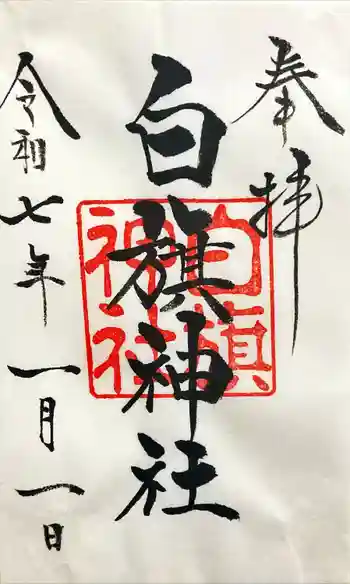 奉拝
白旗神社
白旗神社
令和七年一月一日